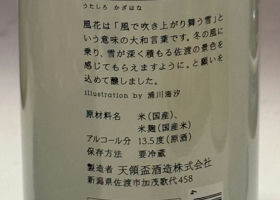 うたしろ かざはな
風花は「風で吹き上がり舞う雪」と
いう意味の大和言葉です。冬の風に
乗り、雪が深く積もる佐渡の景色を
感じてもらえますように。と願いを
込めて醸しました。
illustration by 浦川海汐
原材料名 米(国産)、
米麹(国産米)
アルコール分 13.5度(原酒)
保存方法 要冷蔵
製造者 天領盃酒造株式会社
新潟県佐渡市加茂歌代458